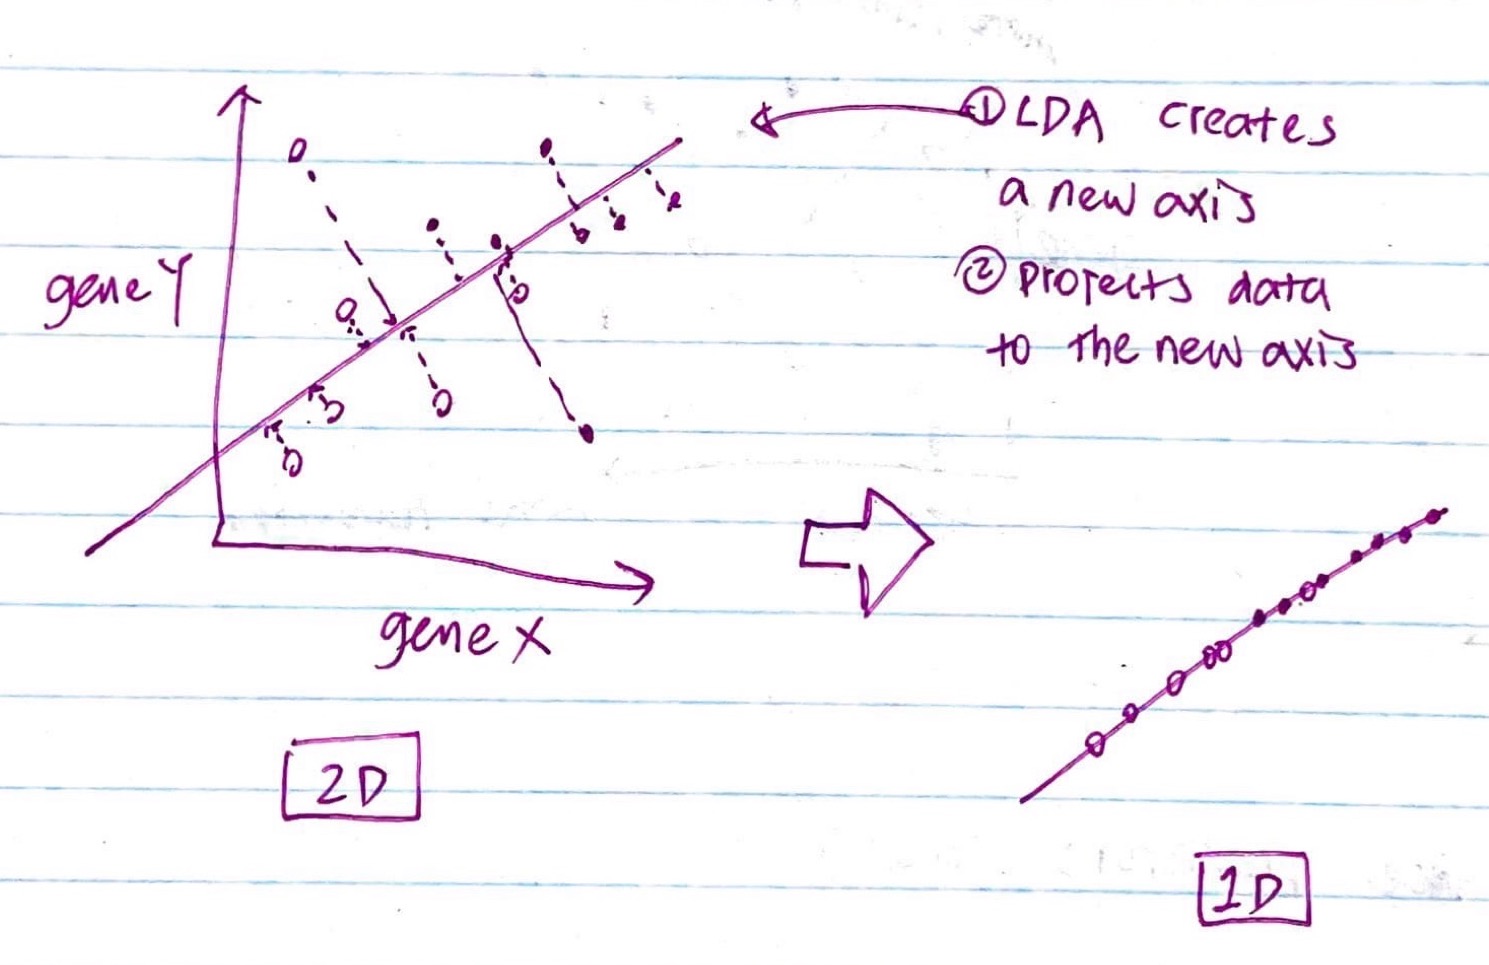 ① LDA creates
a new axis
② Projects data
to the new axis
gene Y
gene X
2D
1D